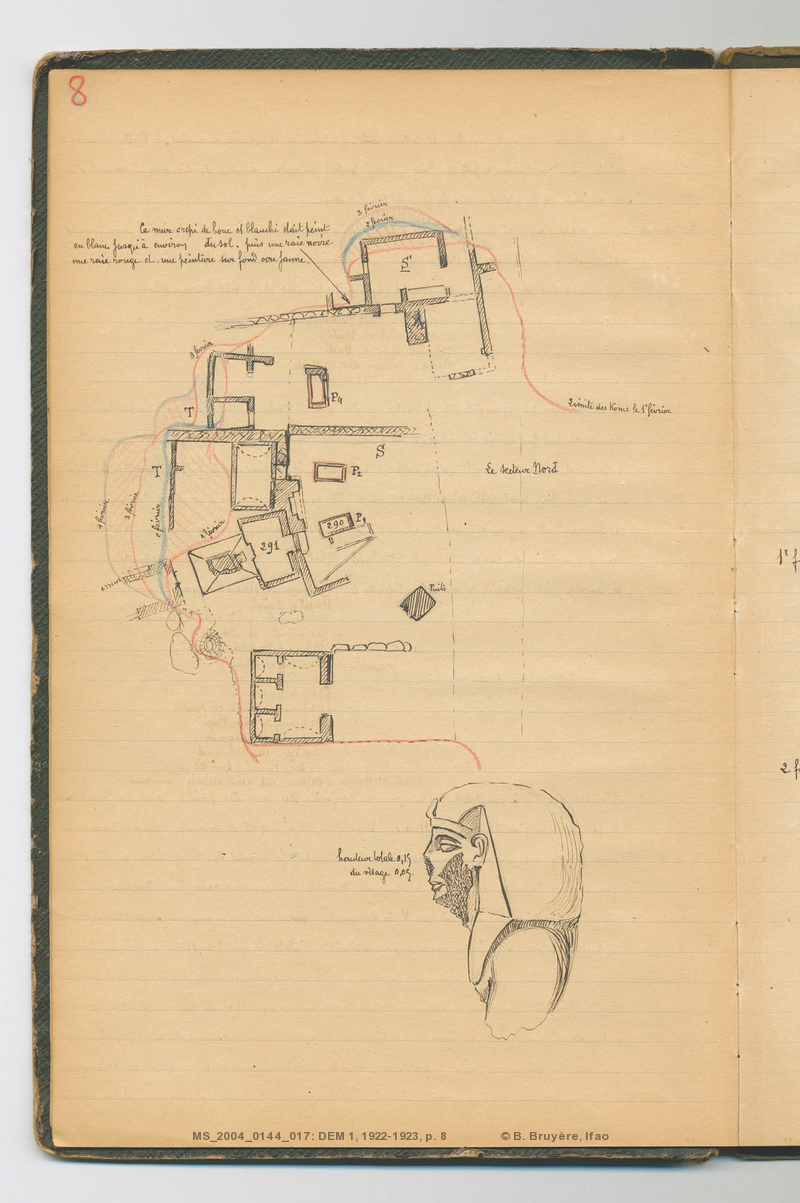 8
3 février
2 février
Ce mur crépi de boue et blanchi était peint
en blanc jusqu'à environ du sol. puis une raie noire
une raie rouge et une peinture sur fond ocre jaune.
S'
3 février
P4
Limite des Koms le 1er février
T'
S
T
P2
Le secteur Nord
1 février
3 février
2 février
1 février
290
P1
291
Puits
1r f
2 f
hauteur totale 0,15
du visage 0,05.
MS_2004_0144_017: DEM 1, 1922-1923, p. 8 © B. Bruyère, Ifao